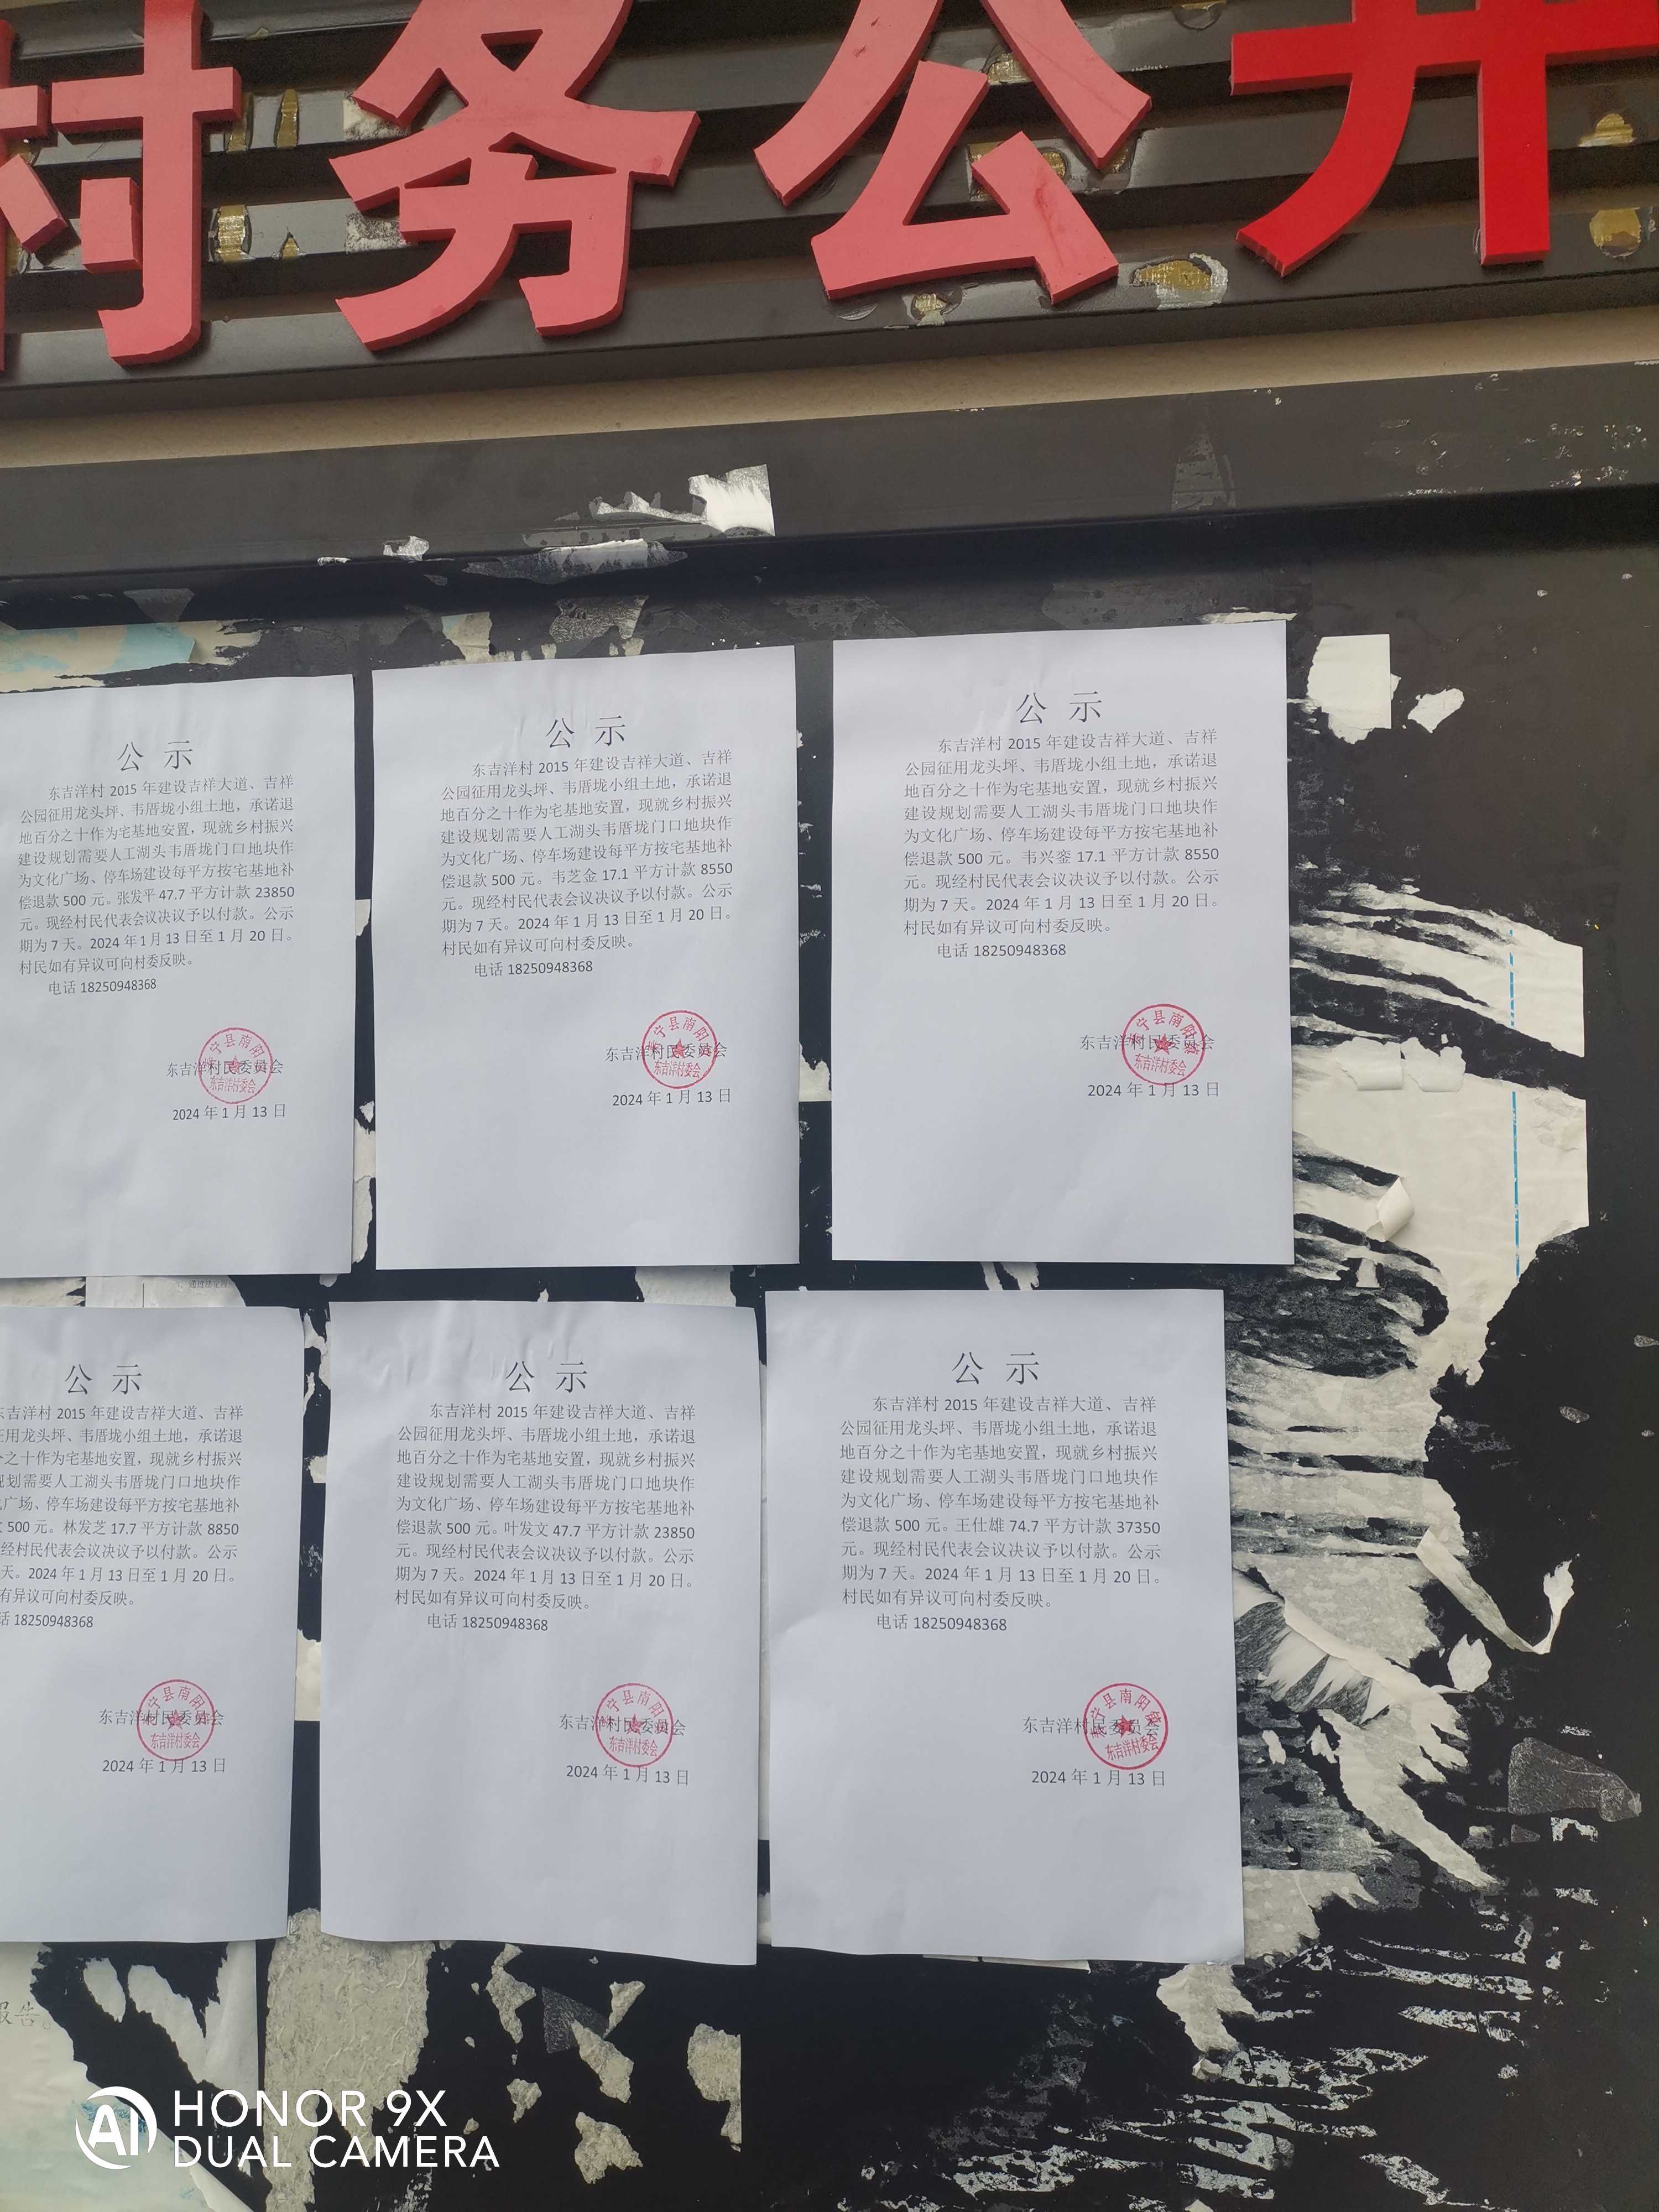 村务公开
公示
东吉洋村 2015 年建设吉祥大道、吉祥
公园征用龙头坪、韦厝垅小组土地，承诺退
地百分之十作为宅基地安置，现就乡村振兴
建设规划需要人工湖头韦厝垅门口地块作
为文化广场、停车场建设每平方按宅基地补
偿退款 500 元。张发平 47.7 平方计款 23850
元。现经村民代表会议决议予以付款。公示
期为 7 天。2024 年 1 月 13 日至 1 月 20 日。
村民如有异议可向村委反映。
电话 18250948368
东吉洋村民委员会
宁县南阳
东吉洋村委会
2024 年 1 月 13 日
公示
东吉洋村 2015 年建设吉祥大道、吉祥
公园征用龙头坪、韦厝垅小组土地，承诺退
地百分之十作为宅基地安置，现就乡村振兴
建设规划需要人工湖头韦厝垅门口地块作
为文化广场、停车场建设每平方按宅基地补
偿退款 500 元。韦芝金 17.1 平方计款 8550
元。现经村民代表会议决议予以付款。公示
期为 7 天。2024 年 1 月 13 日至 1 月 20 日。
村民如有异议可向村委反映。
电话 18250948368
东吉洋村民委员会
宁县南阳
东吉洋村委会
2024 年 1 月 13 日
公示
东吉洋村 2015 年建设吉祥大道、吉祥
公园征用龙头坪、韦厝垅小组土地，承诺退
地百分之十作为宅基地安置，现就乡村振兴
建设规划需要人工湖头韦厝垅门口地块作
为文化广场、停车场建设每平方按宅基地补
偿退款 500 元。韦兴銮 17.1 平方计款 8550
元。现经村民代表会议决议予以付款。公示
期为 7 天。2024 年 1 月 13 日至 1 月 20 日。
村民如有异议可向村委反映。
电话 18250948368
东吉洋村民委员会
宁县南阳镇
东吉洋村委会
2024 年 1 月 13 日
公示
东吉洋村 2015 年建设吉祥大道、吉祥
征用龙头坪、韦厝垅小组土地，承诺退
分之十作为宅基地安置，现就乡村振兴
规划需要人工湖头韦厝垅门口地块作
化广场、停车场建设每平方按宅基地补
款 500 元。林发芝 17.7 平方计款 8850
经村民代表会议决议予以付款。公示
天。2024 年 1 月 13 日至 1 月 20 日。
有异议可向村委反映。
话 18250948368
东吉洋村民委员会
宁县南阳
东吉洋村委会
2024 年 1 月 13 日
公示
东吉洋村 2015 年建设吉祥大道、吉祥
公园征用龙头坪、韦厝垅小组土地，承诺退
地百分之十作为宅基地安置，现就乡村振兴
建设规划需要人工湖头韦厝垅门口地块作
为文化广场、停车场建设每平方按宅基地补
偿退款 500 元。叶发文 47.7 平方计款 23850
元。现经村民代表会议决议予以付款。公示
期为 7 天。2024 年 1 月 13 日至 1 月 20 日。
村民如有异议可向村委反映。
电话 18250948368
东吉洋村民委员会
宁县南阳
东吉洋村委会
2024 年 1 月 13 日
公示
东吉洋村 2015 年建设吉祥大道、吉祥
公园征用龙头坪、韦厝垅小组土地，承诺退
地百分之十作为宅基地安置，现就乡村振兴
建设规划需要人工湖头韦厝垅门口地块作
为文化广场、停车场建设每平方按宅基地补
偿退款 500 元。王仕雄 74.7 平方计款 37350
元。现经村民代表会议决议予以付款。公示
期为 7 天。2024 年 1 月 13 日至 1 月 20 日。
村民如有异议可向村委反映。
电话 18250948368
东吉洋村民委员会
宁县南阳镇
东吉洋村委会
2024 年 1 月 13 日
报告。
AI
HONOR 9X
DUAL CAMERA